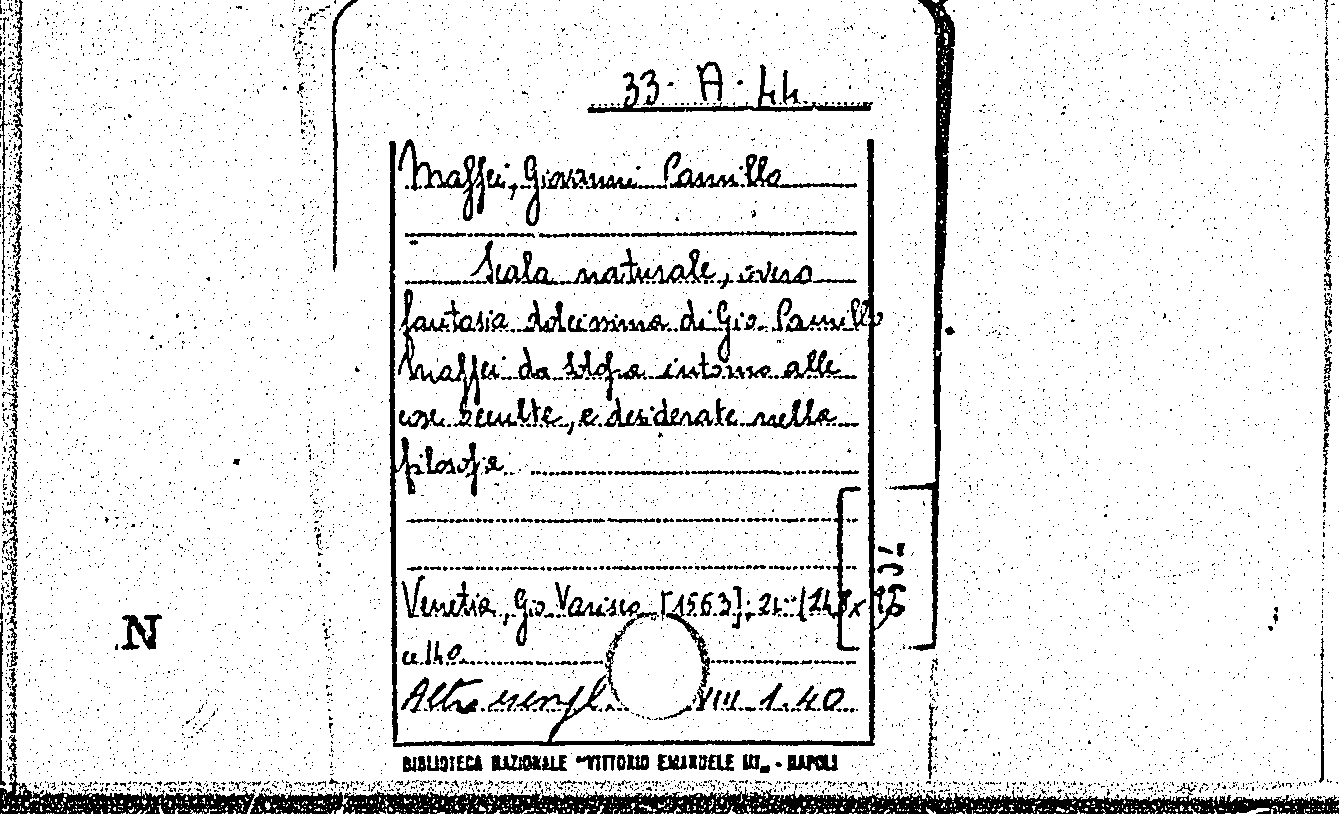 33. A. 44
Maffei, Giovanni Camillo
Scala naturale, overo
fantasia dolcissima di Gio. Camillo
Maffei da Solofra intorno alle
cose occulte, e desiderate nella
filosofia
Venetia, Gio Varisco [1563]; 24°
cc 140
Altro esempl. VIII 1.40
BIBLIOTECA NAZIONALE "VITTORIO EMANUELE III„ - NAPOLI
N